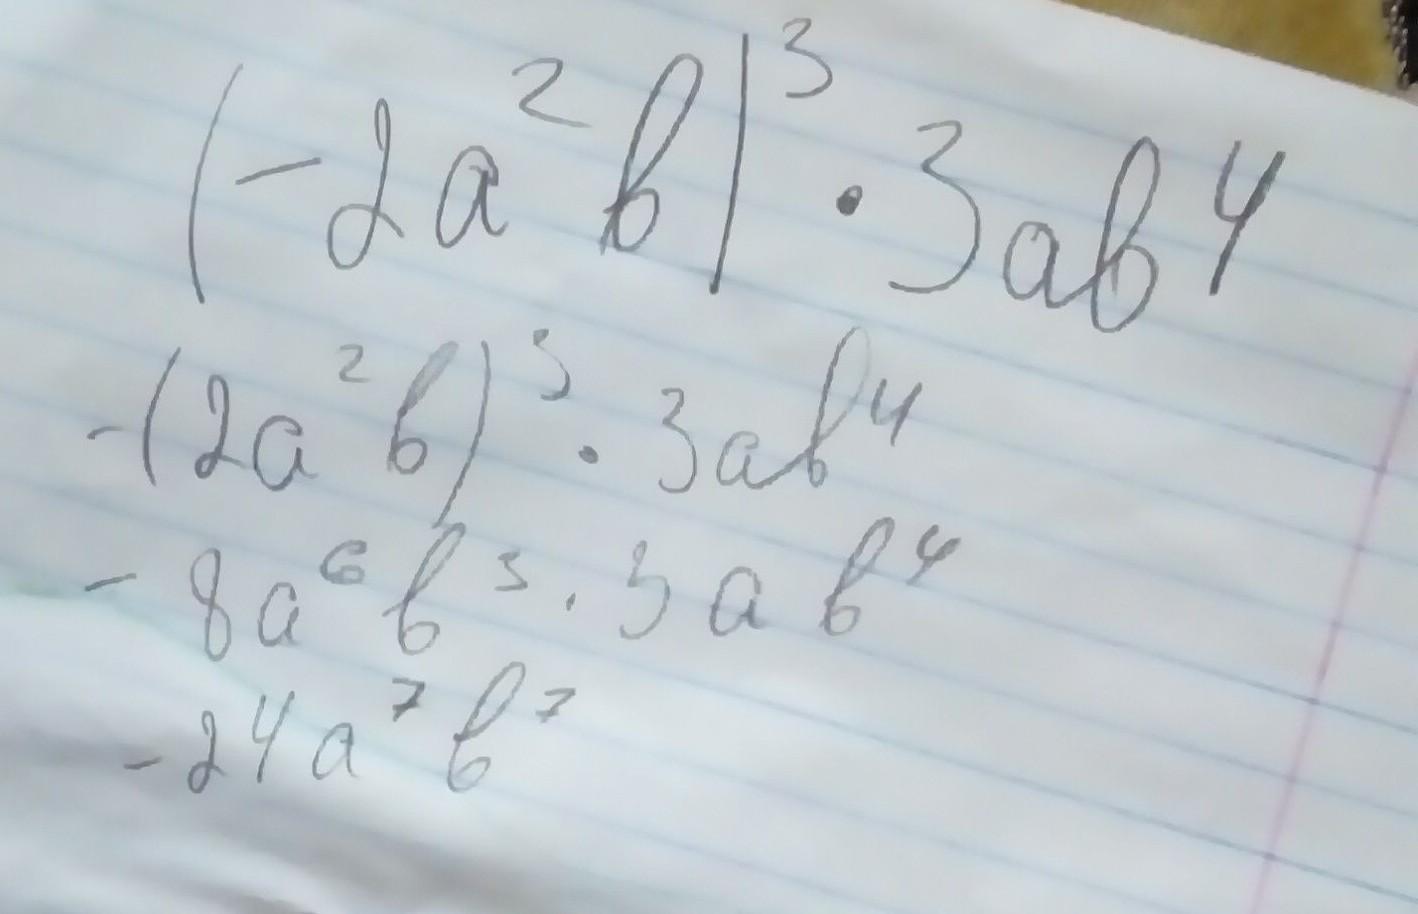 (-2a²b)³·3ab⁴
-(2a²b)³·3ab⁴
-8a⁶b³·3ab⁴
-24a⁷b⁷